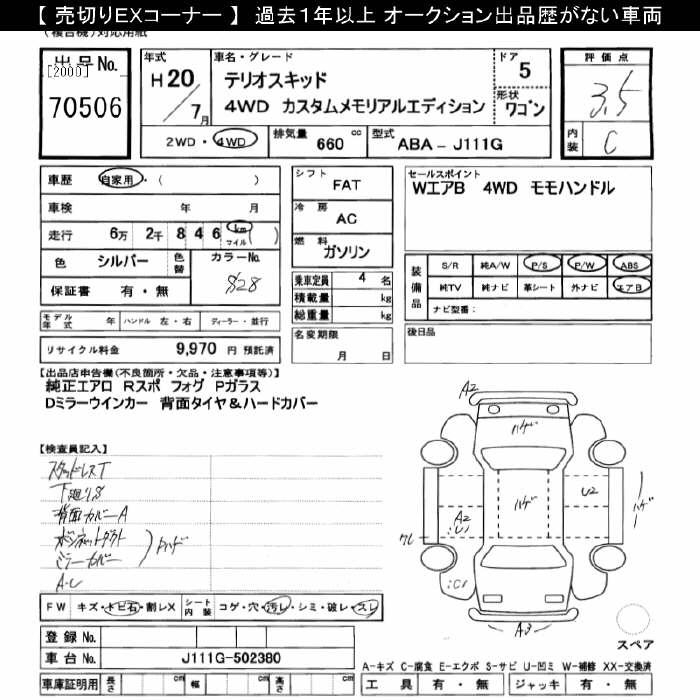 【 売切りEXコーナー 】 過去1年以上 オークション出品歴がない車両
出品No.
[2000]
70506
年式
H20/7月
車名・グレード
テリオスキッド
4WD カスタムメモリアルエディション
ドア
5
形状
ワゴン
評価点
3.5
内装
C
2WD・4WD
排気量
660 cc
型式
ABA-J111G
車歴 自家用・( )
車検 年 月
走行 6万 2千 8 4 6 km マイル ( )
色 シルバー 色替 カラーNo.
S28
保証書 有・無
モデル年式 年 ハンドル 左・右 ディーラー・並行
リサイクル料金 9,970 円 預託済
シフト
FAT
冷房
AC
燃料
ガソリン
乗車定員 4 名
積載量 kg
総重量 kg
名変期限
月 日
セールスポイント
WエアB 4WD モモハンドル
装備品
S/R 純A/W P/S P/W ABS
純TV 純ナビ 革シート 外ナビ エアB
ナビ型番:
後日品
【出品店申告欄(不良箇所・欠品・注意事項等)】
純正エアロ Rスポ フォグ Pガラス
Dミラーウインカー 背面タイヤ&ハードカバー
【検査員記入】
スタッドレスT
下廻りS
背面カバーA
ボンネットダクト
ミラーカバー
ハゲ
A・U
A2
ハゲ
ハゲ
U2
ハゲ
A2
A3
FW キズ・トビ石・割レX シート内装 コゲ・穴・汚レ・シミ・破レ・スレ
登録No.
車台No. J111G-502380
車庫証明用 長さ cm 幅 cm 高さ cm
スペア
A-キズ C-腐食 E-エクボ S-サビ U-凹ミ W-補修 XX-交換済
工具 有・無 ジャッキ 有・無